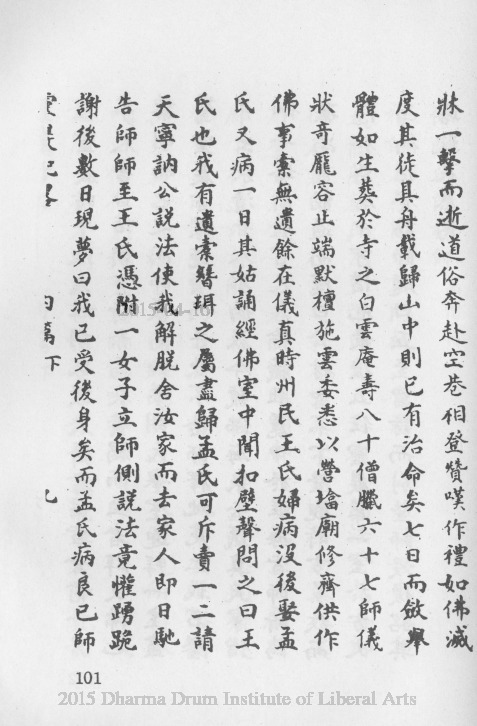 牀一擊而逝道俗奔赴空巷相登贊嘆作禮如佛滅
度其徒具舟載歸山中則已有治命矣七日而斂舉
體如生葬於寺之白雲庵壽八十僧臘六十七師儀
狀奇龐容止端默檀施雲委悉以營塔廟修齋供作
佛事橐無遺餘在儀真時州民王氏婦病沒後娶孟
氏又病一日其姑誦經佛室中聞扣壁聲問之曰王
氏也我有遺橐簪珥之屬盡歸孟氏可斥賣一二請
天寧訥公說法使我解脫舍汝家而去家人即日馳
告師師至王氏憑附一女子立師側說法竟懽踴跪
謝後數日現夢曰我已受後身矣而孟氏病良已師
2015-04-10
101
2015 Dharma Drum Institute of Liberal Arts